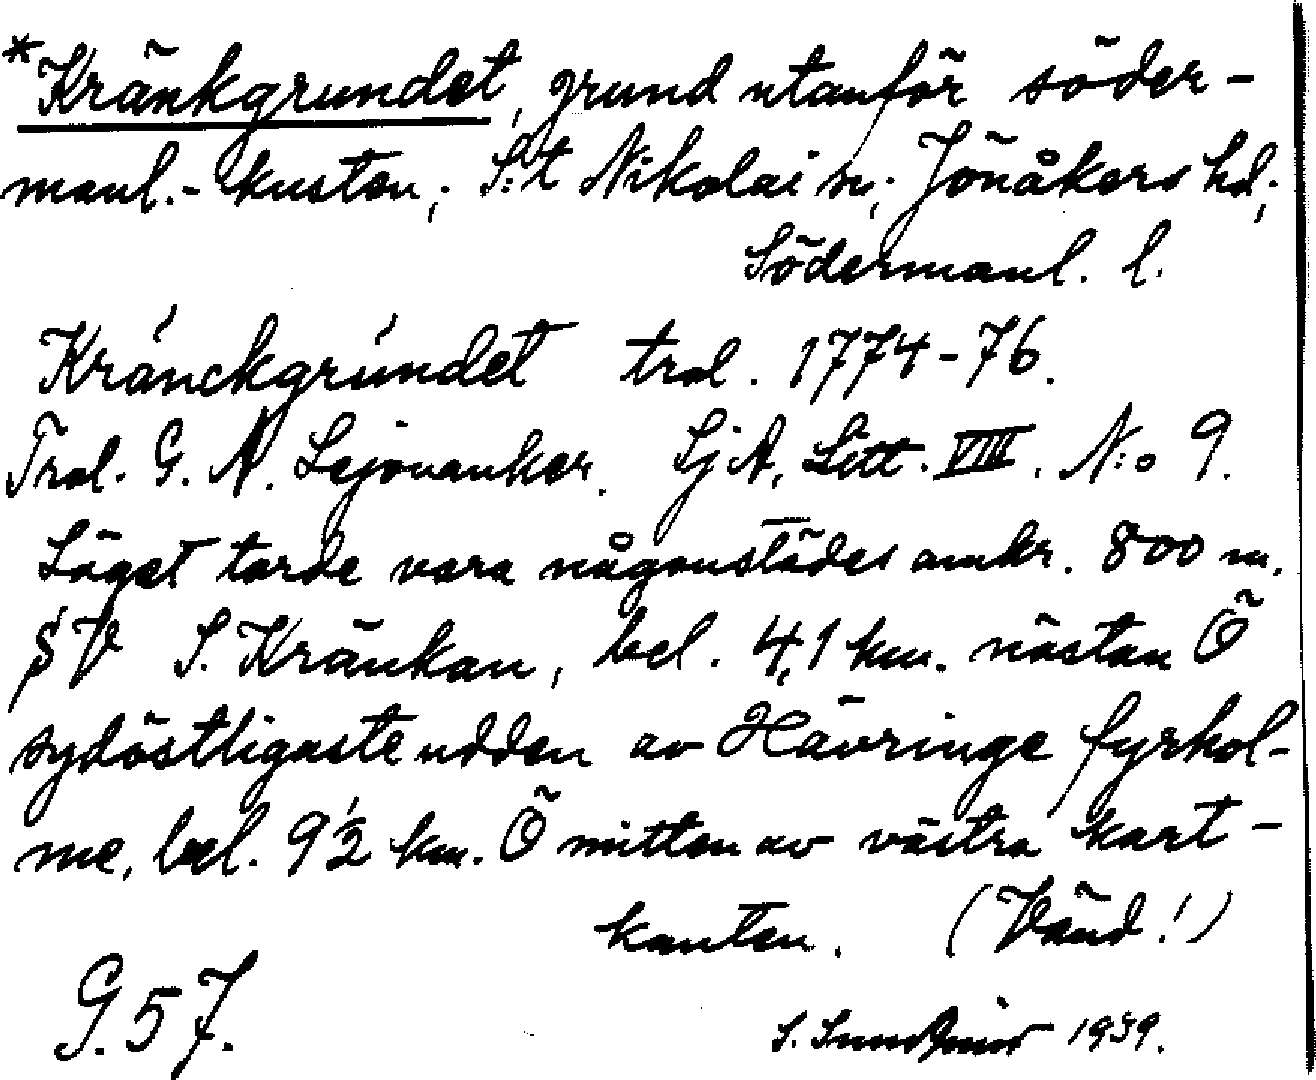 *Kränkgrundet, grund utanför söder-
manl.-kusten; S:t Nikolai sn; Jönåkers hd;
Södermanl. l.
Kränckgrúndet trol. 1774-76.
Trol. G. A. Lejonanker. SjA, Litt. VIII. N:o 9.
Läget torde vara någonstädes omkr. 800 m.
SV S. Kränkan, bel. 4,1 km. nästan Ö
sydöstligaste udden av Hävringe fyrhol-
me, bel. 9½ km. Ö mitten av västra kart-
kanten. (Vänd!)
G. 57.
S. 1939.